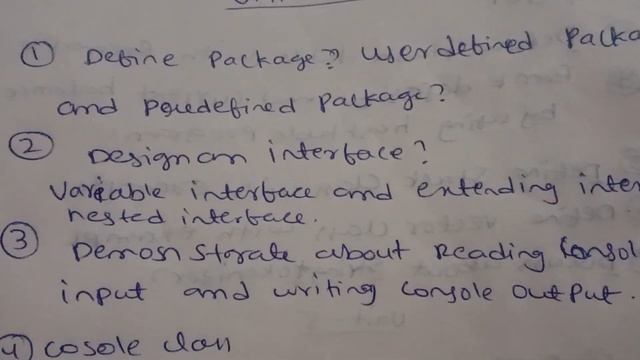 ① Define Package? userdefined Packa
and Predefined Package?
② Design an interface?
Variable interface and extending inter
nested interface.
③ Demonstorate about Reading Consol
input and writing console output.
4) cosole class